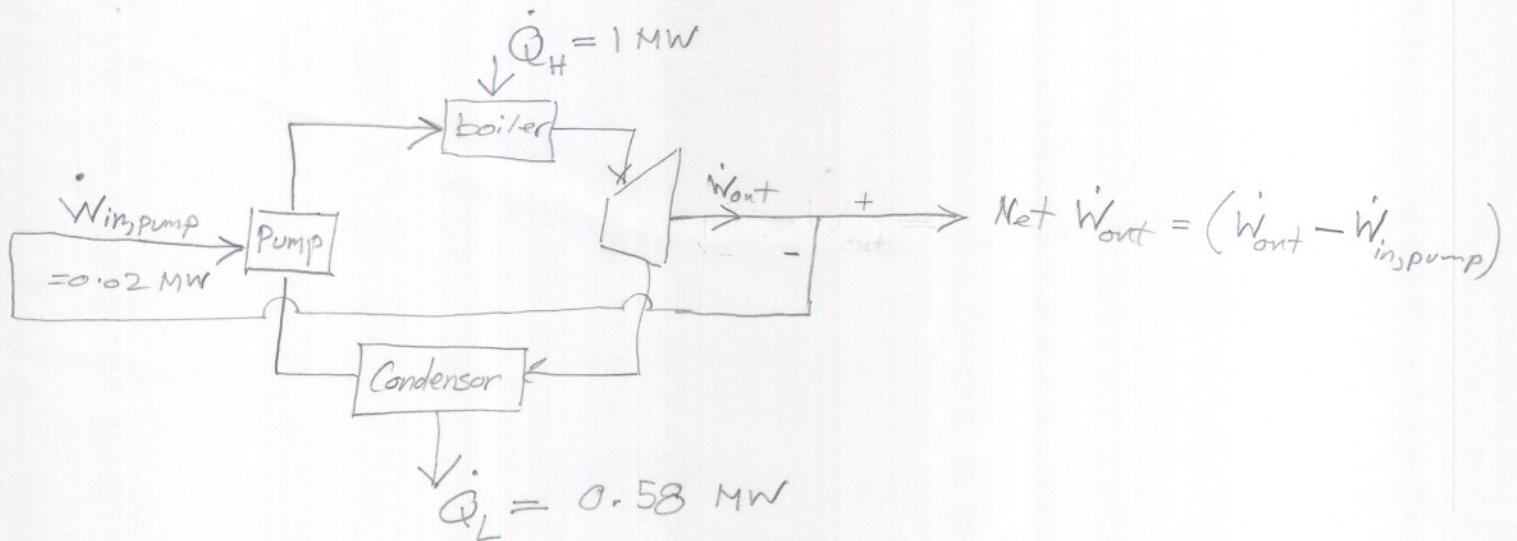 Q̇_H = 1 MW
boiler
Ẇ_in,pump
= 0.02 MW
Pump
Ẇ_out
+
-
Net Ẇ_out = (Ẇ_out - Ẇ_in,pump)
Condensor
Q̇_L = 0.58 MW